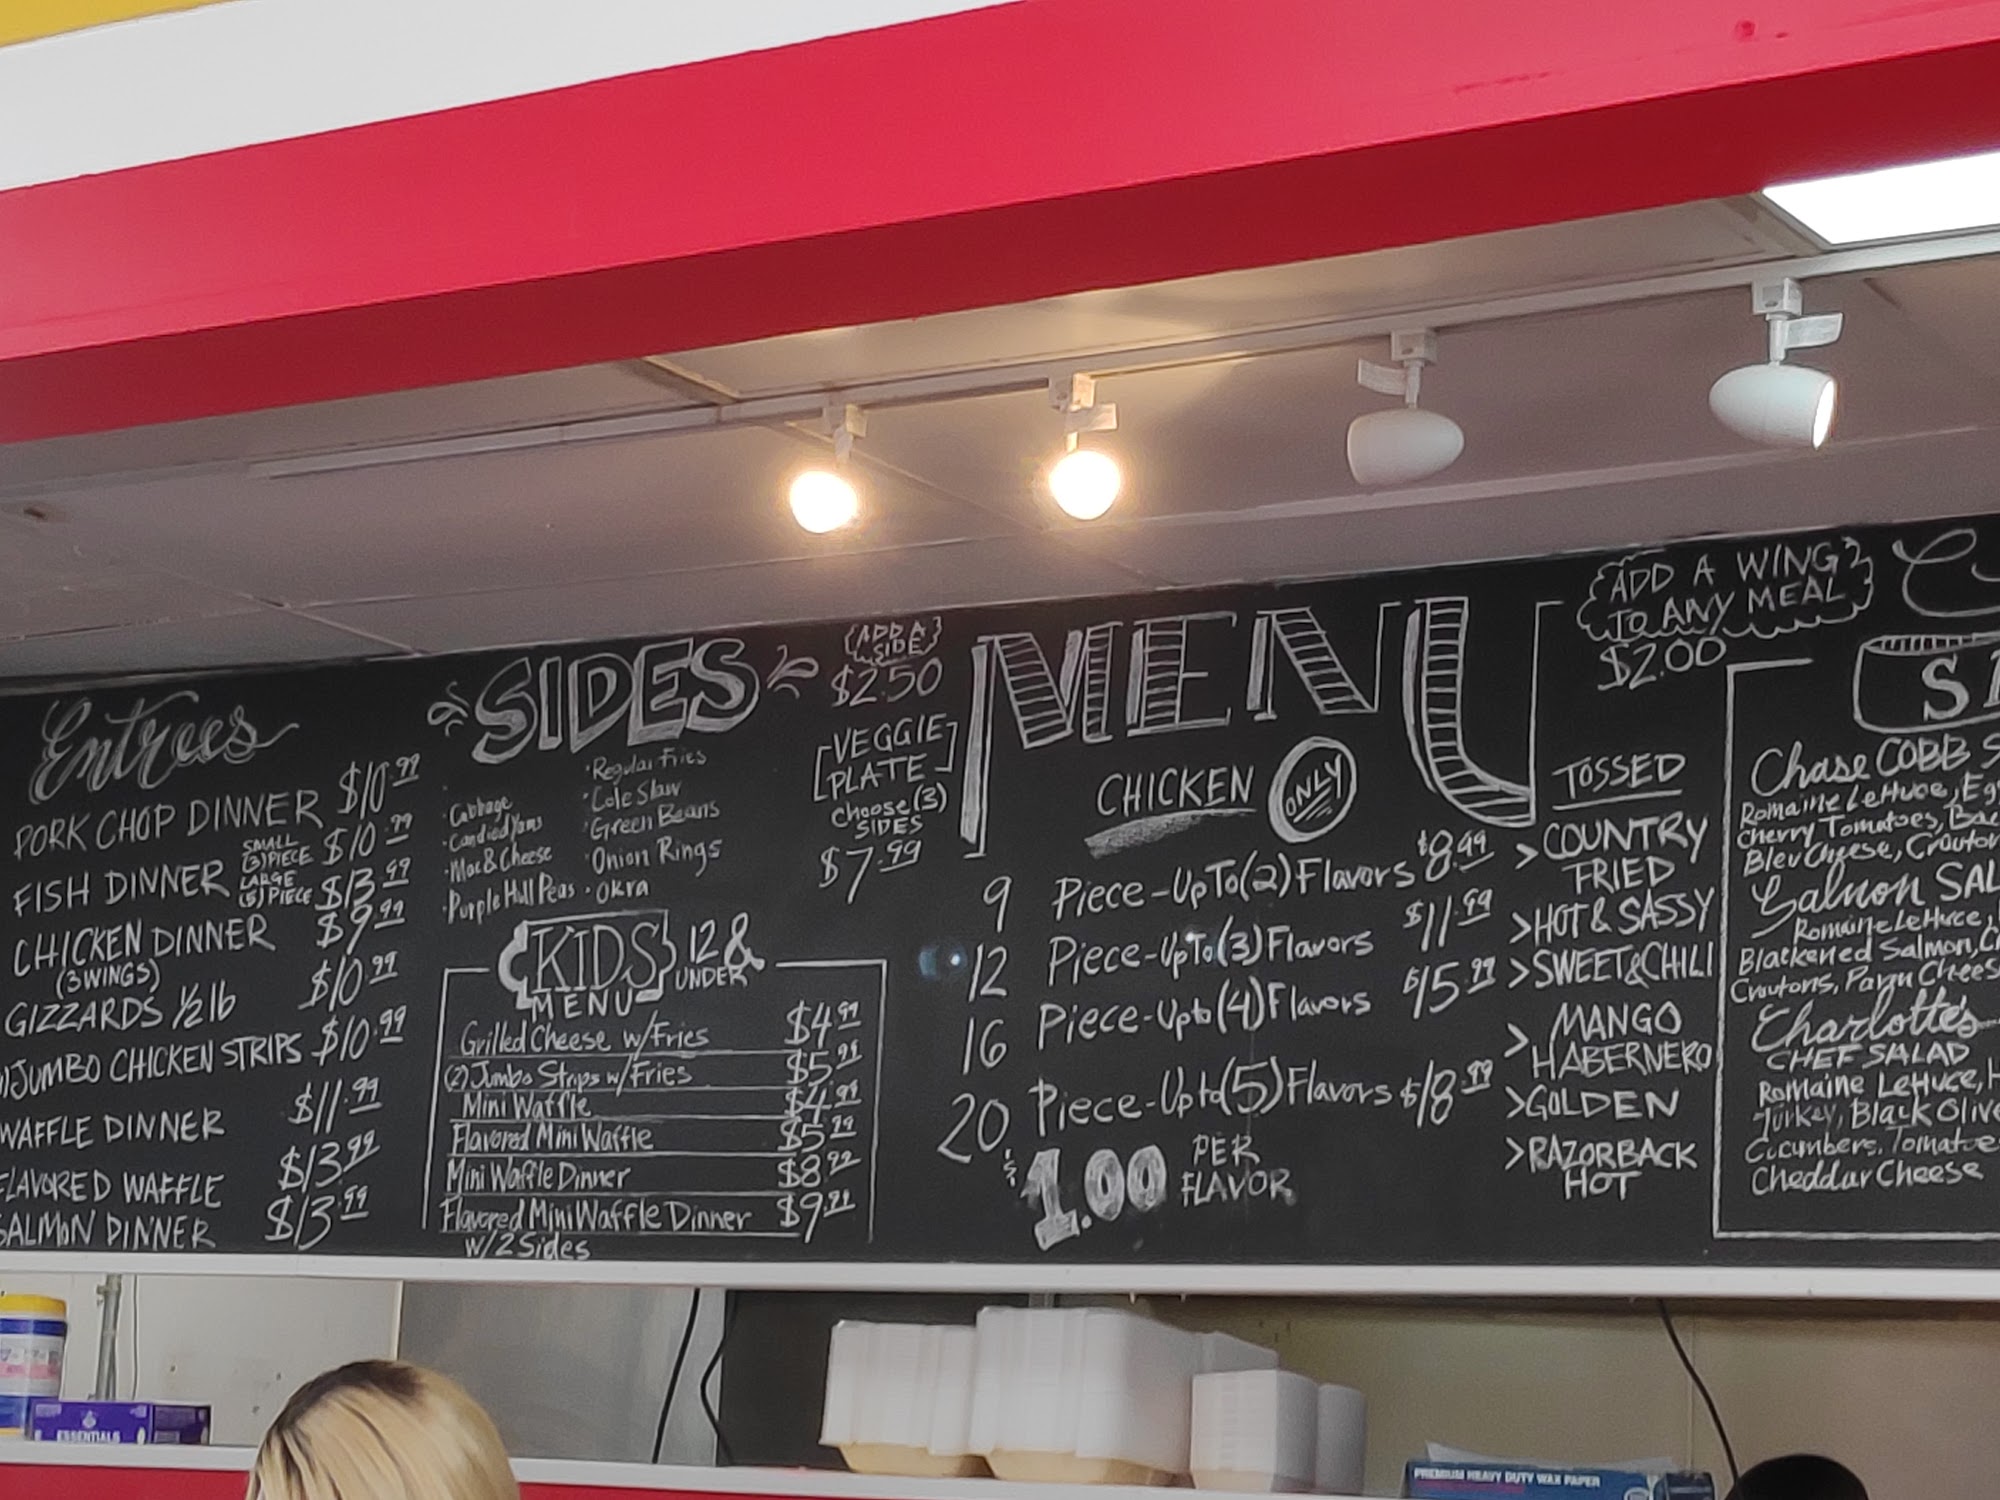 Entrees
PORK CHOP DINNER $10.99
FISH DINNER SMALL (3)PIECE $10.99
LARGE (5)PIECE $13.99
CHICKEN DINNER $9.99
(3 WINGS)
GIZZARDS 1/2 lb $10.99
JUMBO CHICKEN STRIPS $10.99
WAFFLE DINNER $11.99
FLAVORED WAFFLE $13.99
SALMON DINNER $13.99
SIDES
· Cabbage
· Candied Yams
· Mac & Cheese
· Purple Hull Peas
· Regular Fries
· Cole Slaw
· Green Beans
· Onion Rings
· Okra
ADD A
SIDE
$2.50
[VEGGIE
PLATE]
Choose (3)
SIDES
$7.99
KIDS
MENU
12 &
UNDER
Grilled Cheese w/Fries $4.99
(2) Jumbo Strips w/Fries $5.99
Mini Waffle $4.99
Flavored Mini Waffle $5.99
Mini Waffle Dinner $8.99
Flavored Mini Waffle Dinner $9.99
w/2 Sides
MENU
CHICKEN ONLY
9 Piece-UpTo(2)Flavors $8.99
12 Piece-UpTo(3)Flavors $11.99
16 Piece-Upto(4)Flavors $15.99
20 Piece-Upto(5)Flavors $18.99
$1.00 PER
FLAVOR
ADD A WING
TO ANY MEAL
$2.00
TOSSED
>COUNTRY
FRIED
>HOT & SASSY
>SWEET&CHILI
> MANGO
HABERNERO
>GOLDEN
>RAZORBACK
HOT
Chase COBB
Romaine Lettuce,
Cherry Tomatoes,
Bleu Cheese,
Salmon
Romaine Lettuce,
Blackened Salmon,
Croutons, Parm Cheese
Charlotte's
CHEF SALAD
Romaine Lettuce,
Turkey, Black
Cucumbers,
Cheddar Cheese
ESSENTIALS
PREMIUM HEAVY DUTY WAX PAPER